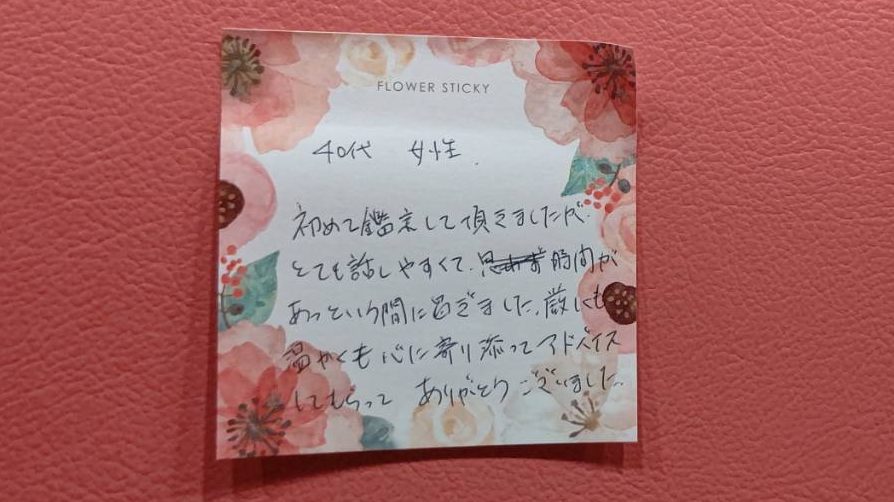 FLOWER STICKY
40代 女性.
初めて鑑定して頂きましたが、
とても話しやすくて、時間が
あっという間に過ぎました。厳しくも
温かくも心に寄り添ってアドバイス
してもらって ありがとうございました。